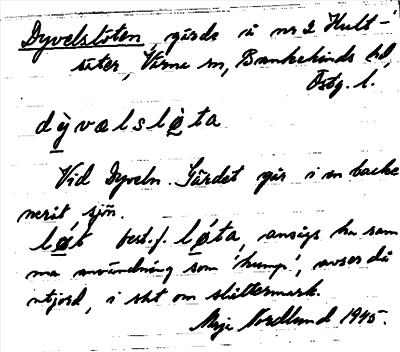 Dyvelslöten, gärde å nr 2 Hult-
säter, Värna sn, Bankekinds hd,
Östg. l.
dỳ̱vælslø̱ta
Vid Dyveln. Gärdet går i en backe
neråt sjön.
lǿ̱t best. f. lǿ̱ta, anságs ha sam
ma användning som 'hump', avser då
utjord, i sht om slåttermark.
Maja Nordlund 1945.